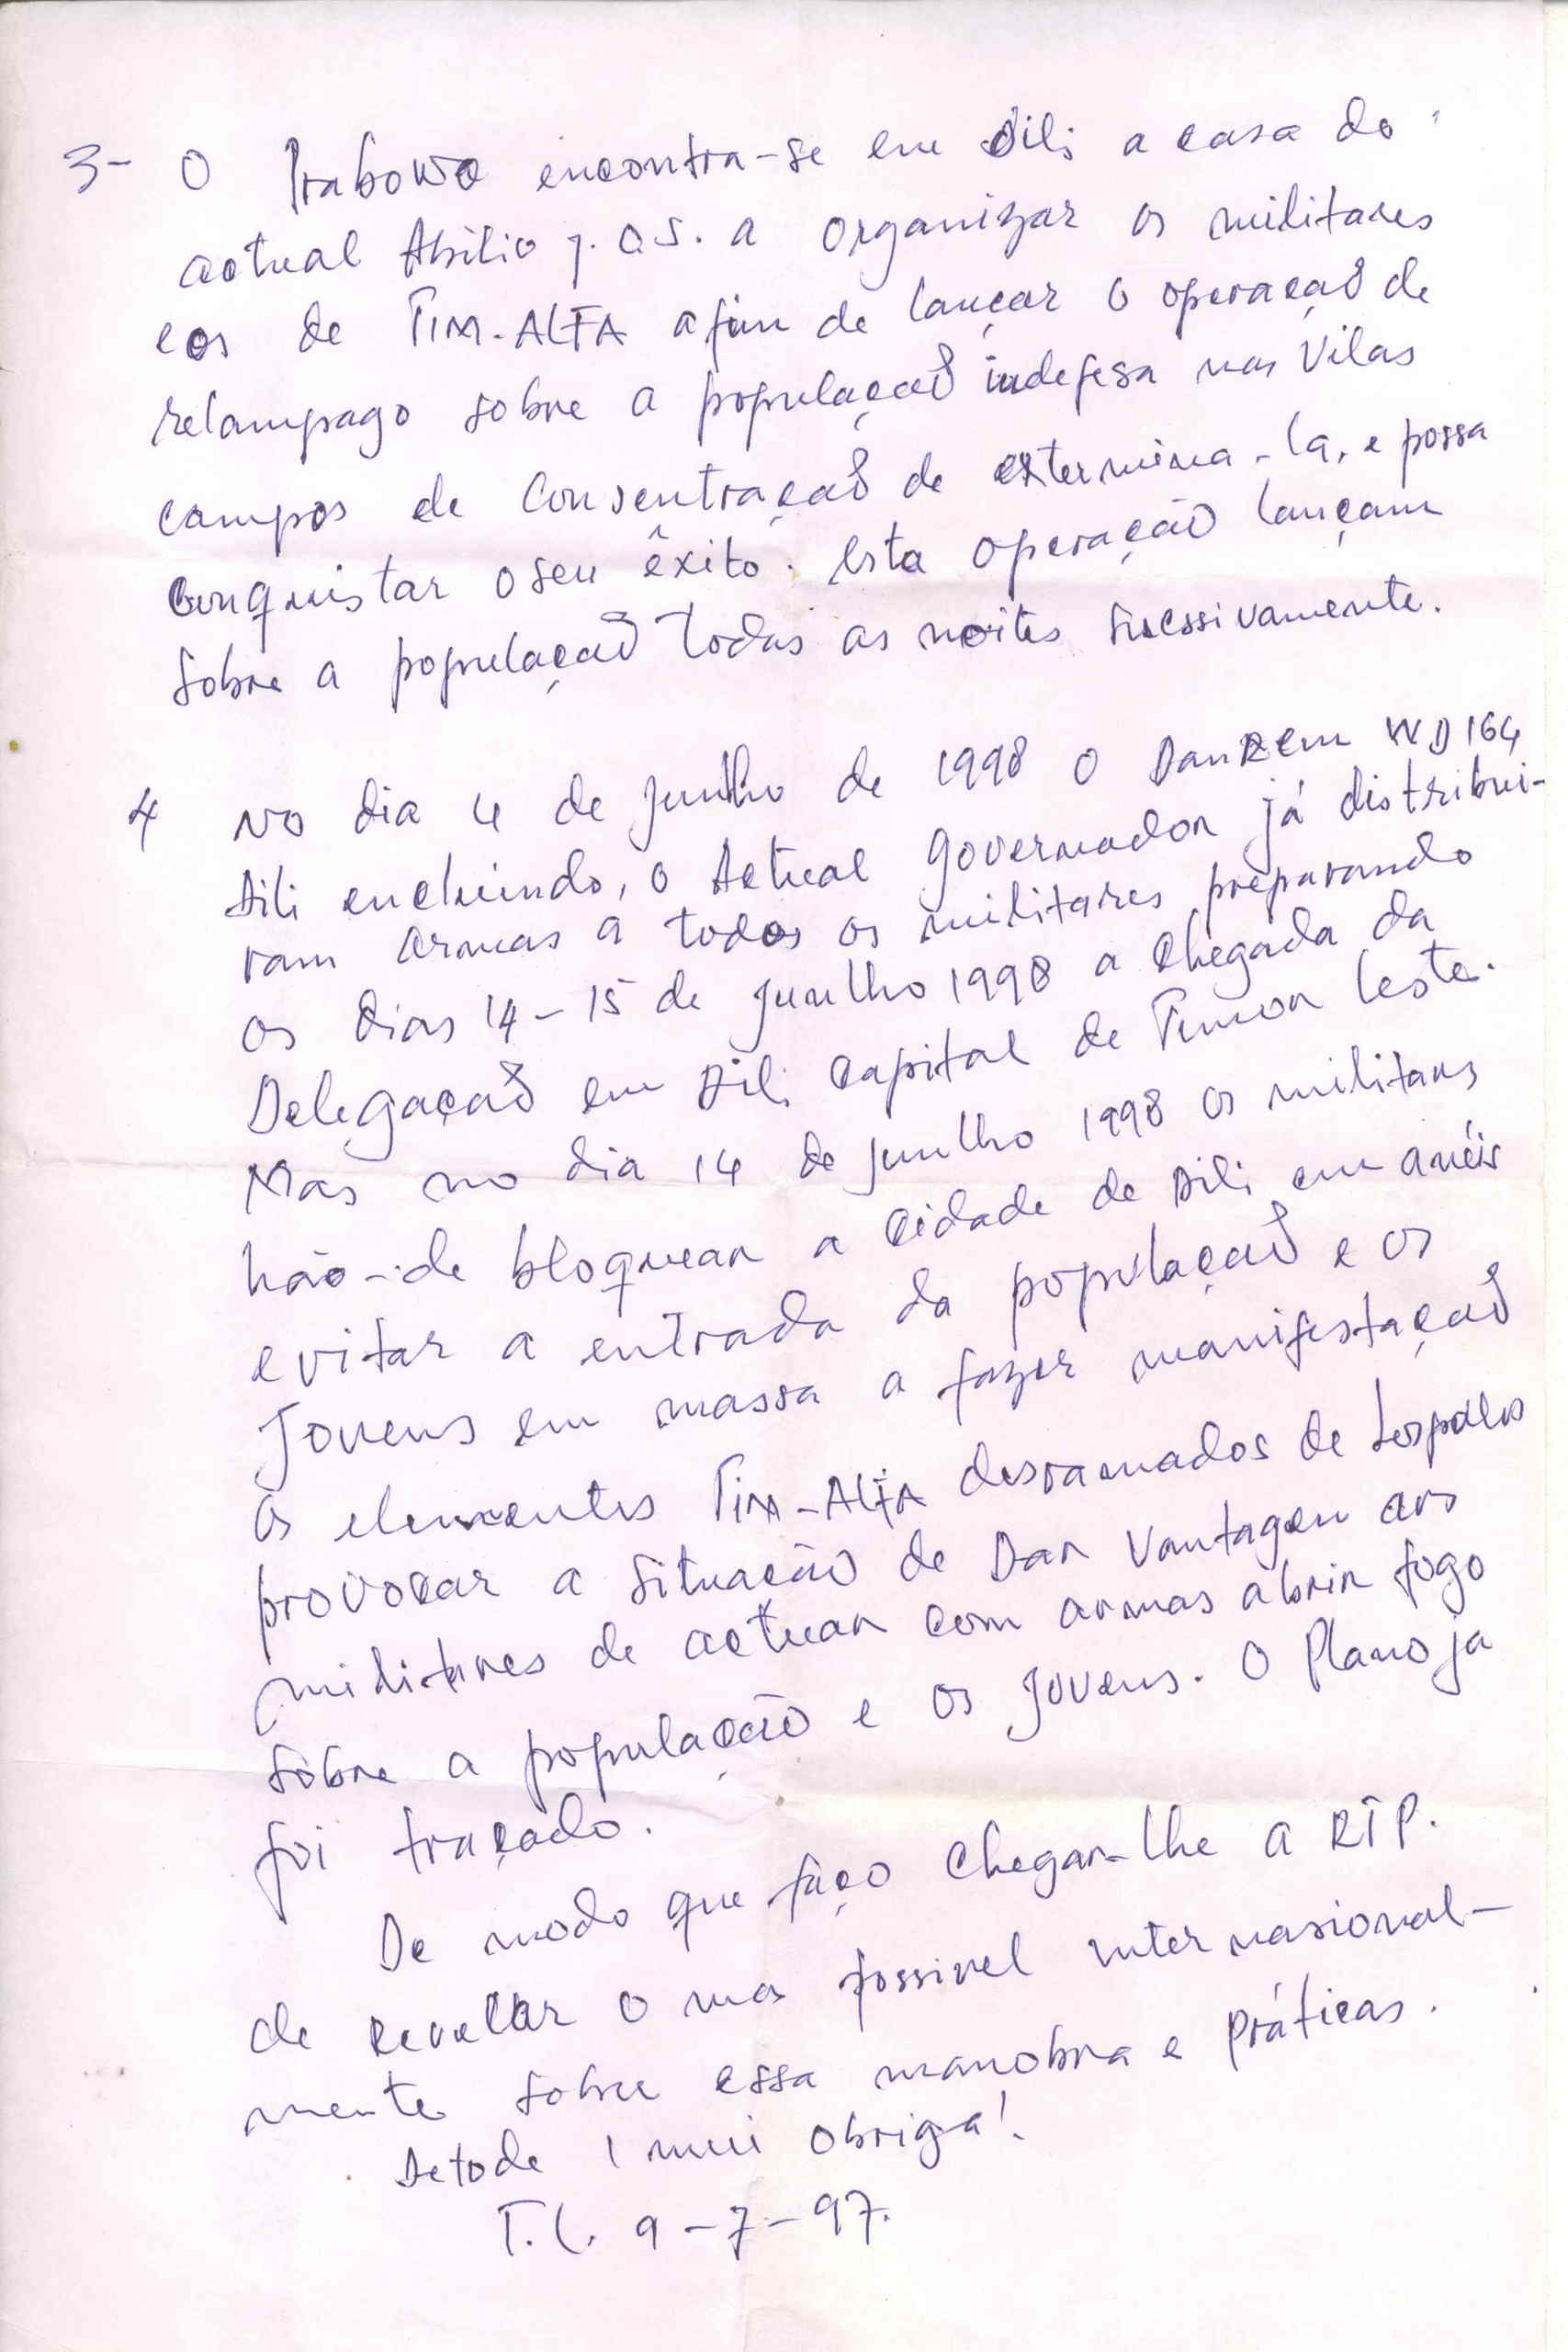 3- O Prabowo encontra-se em Dili a casa do
actual Abílio J. O.S. a organizar os militares
eos de TIM-ALFA afim de lançar o operaçaõ de
relampago sobre a populaçaõ indefesa nas Vilas
campos de Consentraçaõ de extermina-la, e possa
Conquistar o seu êxito. Esta operação lançam
sobre a populaçaõ todas as noites sucessivamente.
4 No dia 4 de Junlho de 1998 o DanRem WD 164
Dili encluindo, o Actual Governador já distribui-
ram armas a todos os militares preparando
os dias 14-15 de Junlho 1998 a Chegada da
Delegaçaõ em Dili Capital de Timor Leste.
Mas no dia 14 de Junlho 1998 os militares
hão-de bloquear a Cidade de Dili em anéis
evitar a entrada da populaçaõ e os
Jovens em massa a fazer manifestaçaõ
Os elementos TIM-ALFA desramados de Lospalos
provocar a situação de Dar Vantagem aos
militares de actuar com armas abrir fogo
sobre a população e os Jovens. O Plano ja
foi traçado.
De modo que faço Chegar-lhe a RTP.
de revelar o mas possivel internasional-
mente sobre essa manobra e Práticas.
Actode 1 mui Obriga!
T.L. 9-7-97.